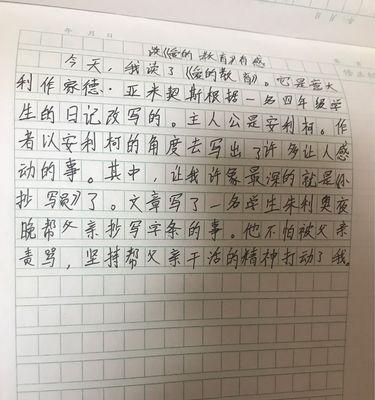 年 月 日
读《爱的教育》有感
今天，我读了《爱的教育》。它是意大
利作家德·亚米契斯根据一名四年级学
生的日记改写的。主人公是安利柯。作
者以安利柯的角度去写出了许多让人感
动的事。其中，让我许象最深的就是《小
抄写员》了。文章写了一名学生朱利奥夜
晚帮父亲抄写字条的事。他不怕被父亲
责骂，坚持帮父亲干活的精神打动了我。